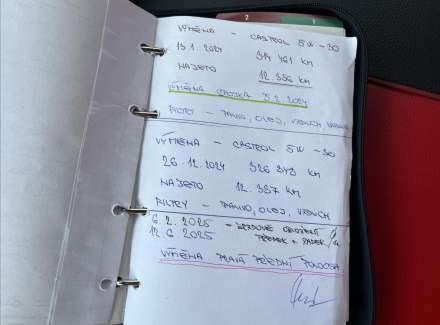 VÝMĚNA - CASTROL 5W-30
13.1.2024 314 461 KM
NAJETO 12.336 KM
VÝMĚNA 5.2.2024
FILTRY - PALIVO, OLEJ, VZDUCH,
VÝMĚNA - CASTROL 5W-30
26.12.2024 326 843 KM
NAJETO 12.387 KM
FILTRY - PALIVO, OLEJ, VZDUCH
6.2.2025 -
12.6.2025 PŘEDEK + ZADEK
VÝMĚNA PRAVÁ PŘEDNÍ POLOOSA
2